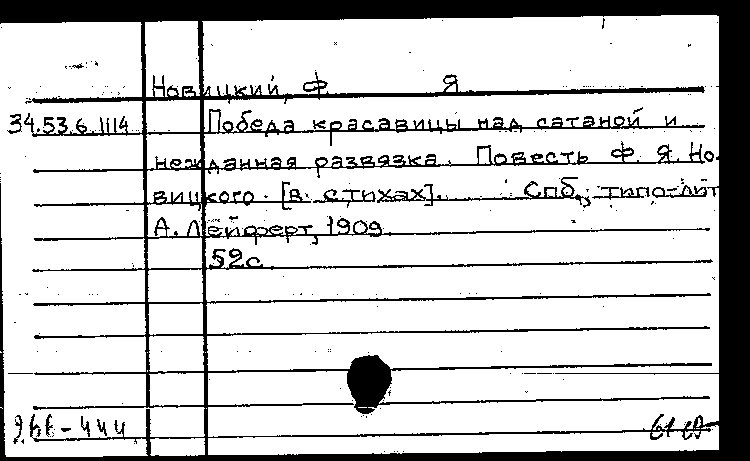 Новицкий, Ф. Я
34.53.6.1114 Победа красавицы над сатаной и
нежданная развязка. Повесть Ф. Я. Но-
вицкого. [в стихах]. Спб., типо-лит
А. Лейферт, 1909.
52с.
266-444